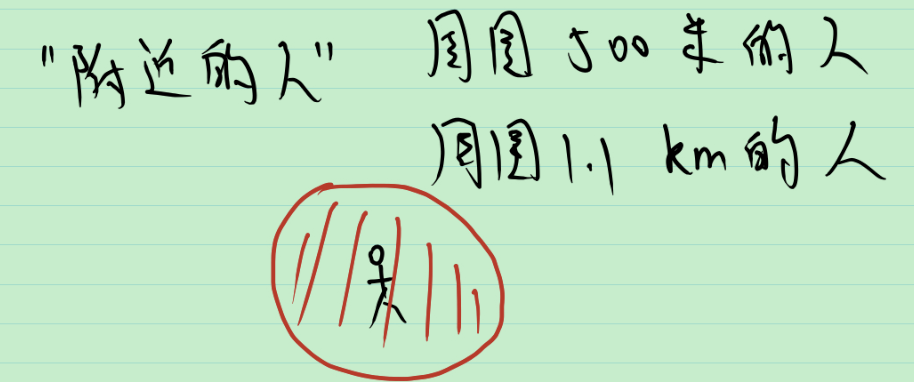 "附近的人"
周围500米的人
周围1.1 km的人